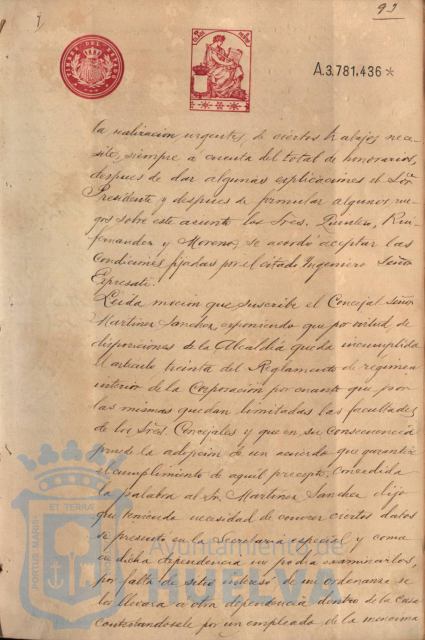 92
TIMBRE DEL ESTADO
A.3.781.436*
la realización urgente, de ciertos trabajos nece-
site, siempre a cuenta del total de honorarios,
despues de dar algunas esplicaciones el Sór.
Presidente y despues de formular algunos rue-
gos sobre este asunto los Sres. Quintero, Ruiz
Fernandez y Moreno, se acordó aceptar las
condiciones fijadas por el citado Ingeniero Señor
Leida moción que suscribe el Concejal Señor
Martinez Sanchez exponiendo que por virtud de
disposiciones de la Alcaldía queda incumplido
el articulo treinta del Reglamento de regimen
interior de la Corporación por cuanto que por
las mismas quedan limitadas las facultades
de los Sres. Concejales y que en su consecuencia
procede la adopción de un acuerdo que garantice
el cumplimiento de aquel precepto, concedida
la palabra al Sr. Martinez Sanchez dijo
que teniendo necesidad de conocer ciertos datos
se presentó en la Secretaria especial y como
en dicha dependencia no podia examinarlos,
por falta de sitio interesó de un ordenanza se
los llevara a otra dependencia dentro de la casa
contestandosele por un empleado de la misma
PORTUS MARIS
ET TERRAE
Ayuntamiento de
HUELVA